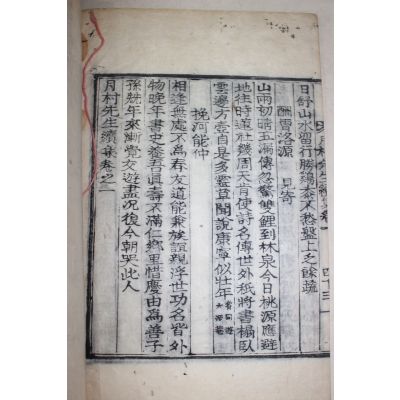 日舒山水留行勝綠春不愁盤上乏餘蔬
酬曹洛源 見寄
山雨初晴五漏傳忽驚雙鯉到林泉今日桃源應避
地往時蓮社幾周天肯使詩名傳世外紙將書榻臥
雲邊方壺自是多靈草聞說康寧似壯年
挽河能仲
相逢無處不為春友道能兼族誼親浮世功名皆外
物晚年書史益吾眞壽不滿仁鄕里惜慶由為善子
孫兟年來漸覺交遊盡况復今朝哭此人
月村先生續集卷之一